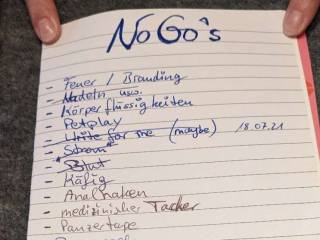 NoGo's
- Feuer / Branding
- Nadeln usw.
- Körperflüssigkeiten
- Petplay
- Write for me (maybe) 18.07.21
- Strom
- Blut
- Käfig
- Analhaken
- medizinischer Tacker
- Panzertape